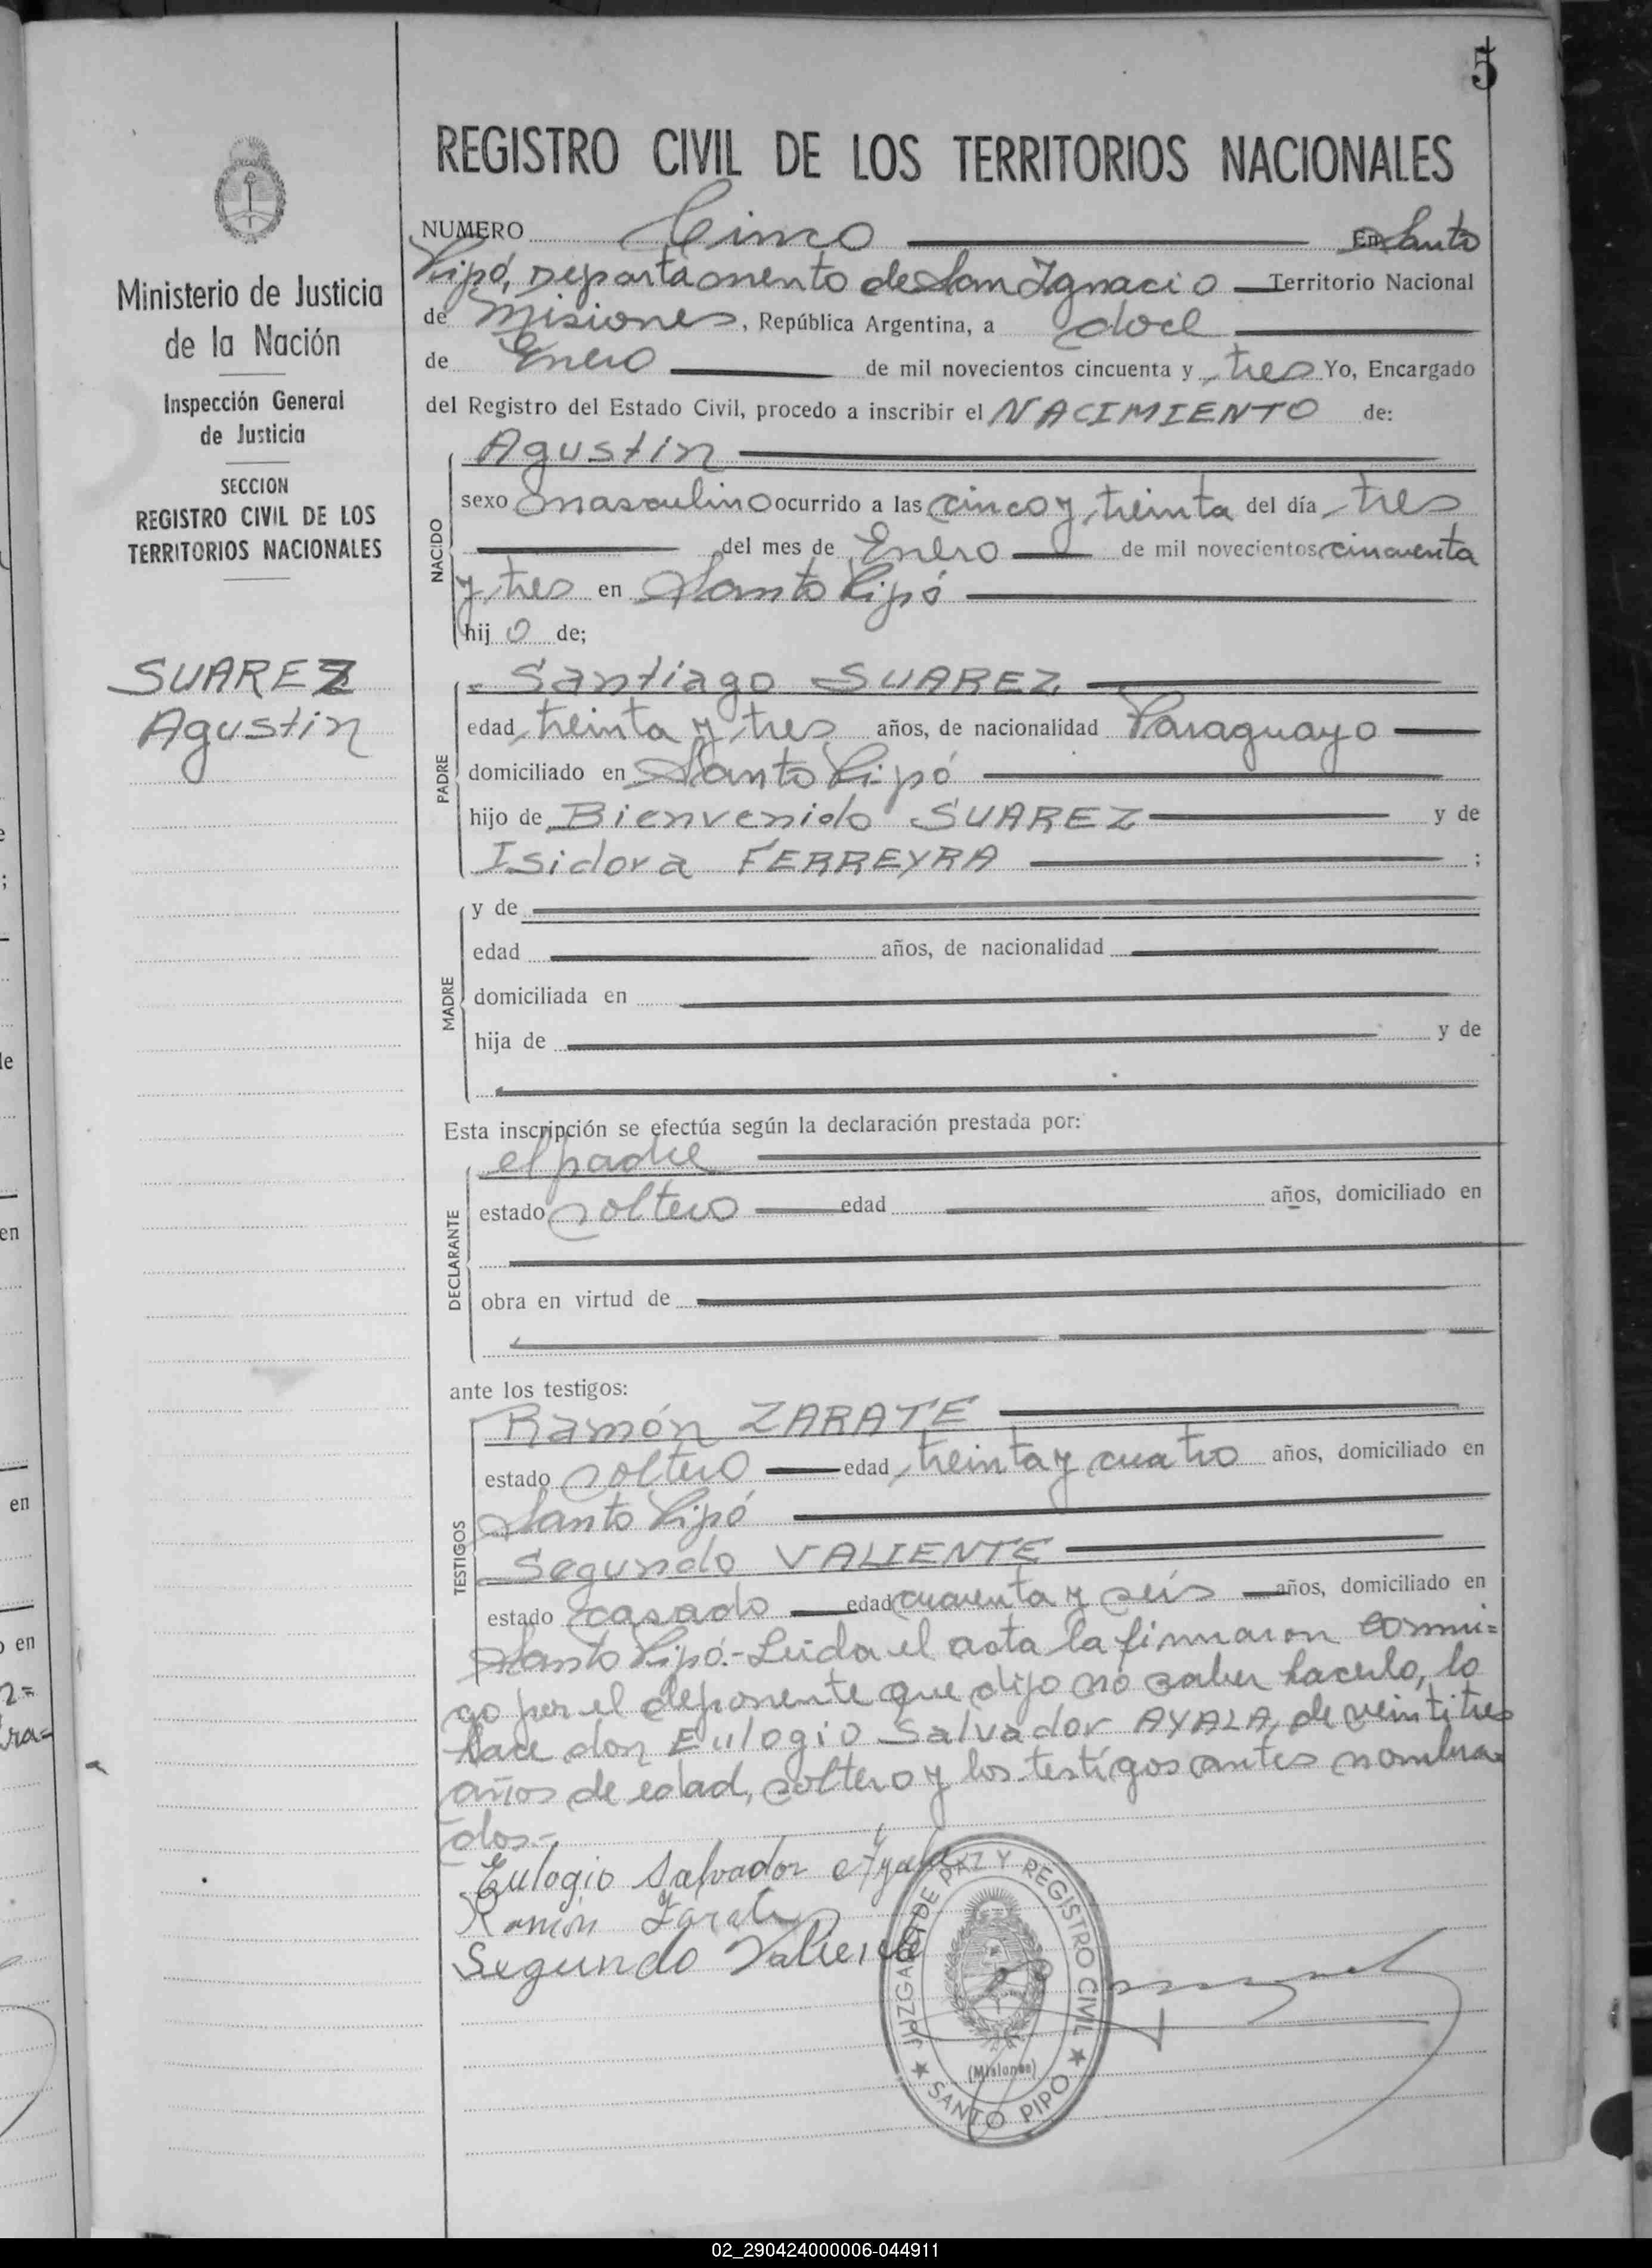 5
REGISTRO CIVIL DE LOS TERRITORIOS NACIONALES
Ministerio de Justicia
de la Nación
Inspección General
de Justicia
SECCION
REGISTRO CIVIL DE LOS
TERRITORIOS NACIONALES
SUAREZ
Agustin
NUMERO Cinco En Santo
Pipó, Departamento de San Ignacio Territorio Nacional
de Misiones, República Argentina, a doce
de Enero de mil novecientos cincuenta y tres Yo, Encargado
del Registro del Estado Civil, procedo a inscribir el NACIMIENTO de:
NACIDO
Agustin
sexo masculino ocurrido a las cinco y treinta del día tres
del mes de Enero de mil novecientos cincuenta
y tres en Santo Pipó
hijo de;
PADRE
Santiago SUAREZ
edad treinta y tres años, de nacionalidad Paraguayo
domiciliado en Santo Pipó
hijo de Bienvenido SUAREZ y de
Isidora FERREYRA ;
MADRE
y de
edad años, de nacionalidad
domiciliada en
hija de y de
Esta inscripción se efectúa según la declaración prestada por:
DECLARANTE
el padre
estado soltero edad años, domiciliado en
obra en virtud de
ante los testigos:
TESTIGOS
Ramón ZARATE
estado soltero edad treinta y cuatro años, domiciliado en
Santo Pipó
Segundo VALIENTE
estado casado edad cuarenta y seis años, domiciliado en
Santo Pipó.- Leida el acta la firmaron conmi=
go por el deponente que dijo no saber hacerlo, lo
hace don Eulogio Salvador AYALA, de veintitres
años de edad, soltero y los testigos antes nombra=
dos.-
Eulogio Salvador Ayala
Ramón Zarate
Segundo Valiente
JUZGADO DE PAZ Y REGISTRO CIVIL
(Misiones)
★ SANTO PIPO ★
02_290424000006-044911